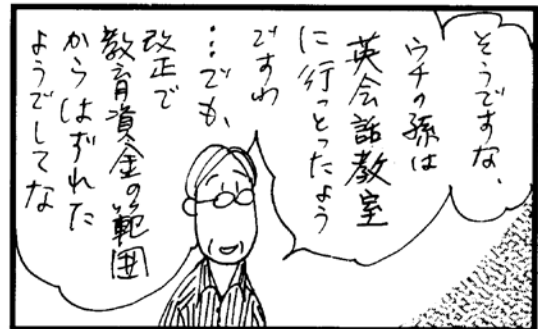 そうですな、
ウチの孫は
英会話教室
に行っとったよう
ですわ
…でも、
改正で
教育資金の範囲
からはずれた
ようでしてな